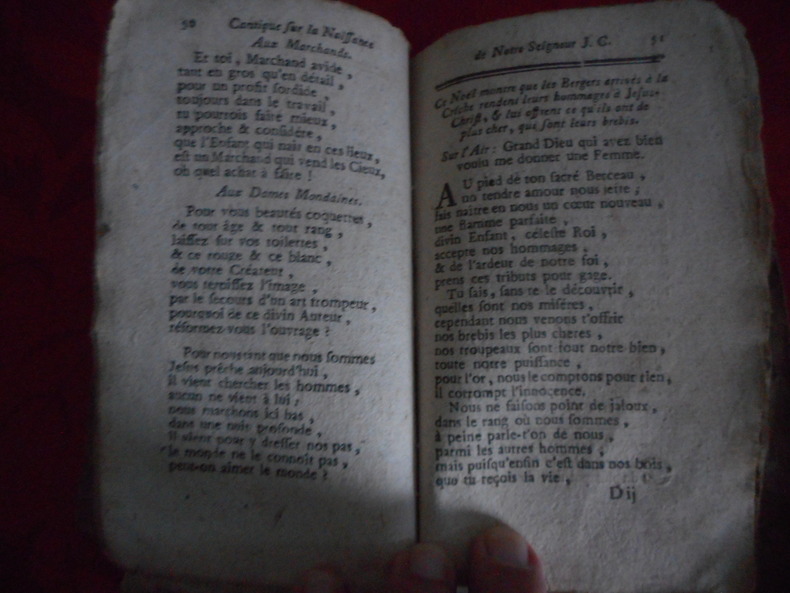 50 Cantique ſur la Naiſſance
Aux Marchands.
Et toi, Marchand avide,
tant en gros qu'en détail,
pour un profit ſordide,
toujours dans le travail,
tu pourrois faire mieux,
approche & conſidére,
que l'Enfant qui nait en ces lieux,
eſt un Marchand qui vend les Cieux,
oh quel achat à faire !
Aux Dames Mondaines.
Pour vous beautés coquettes,
de tout âge & tout rang,
laiſſez ſur vos toilettes,
& ce rouge & ce blanc,
de votre Créateur,
vous terniſſez l'image,
par le ſecours d'un art trompeur,
pourquoi de ce divin Auteur,
réformez-vous l'ouvrage ?
Pour nous tant que nous ſommes
Jeſus prêche aujourd'hui,
il vient chercher les hommes,
aucun ne vient à lui,
nous marchons ici bas,
dans une nuit profonde,
il vient pour y dreſſer nos pas,
le monde ne le connoît pas,
peut-on aimer le monde ?
de Notre Seigneur J. C. 51
Ce Noël montre que les Bergers arrivés à la
Crêche rendent leurs hommages à Jeſus-
Chriſt, & lui offrent ce qu'ils ont de
plus cher, que ſont leurs brebis.
Sur l'Air : Grand Dieu qui avez bien
voulu me donner une Femme.
AU pied de ton ſacré Berceau,
un tendre amour nous jette ;
fais naître en nous un cœur nouveau,
une flamme parfaite,
divin Enfant, céleſte Roi,
accepte nos hommages,
& de l'ardeur de notre foi,
prens ces tributs pour gage.
Tu ſais, ſans te le découvrir,
quelles ſont nos miſéres,
cependant nous venons t'offrir
nos brebis les plus cheres,
nos troupeaux ſont tout notre bien,
toute notre puiſſance,
pour l'or, nous le comptons pour rien,
il corrompt l'innocence.
Nous ne faiſons point de jaloux,
dans le rang où nous ſommes,
à peine parle-t'on de nous,
parmi les autres hommes ;
mais puiſqu'enfin c'eſt dans nos bois,
que tu reçois la vie,
Dij